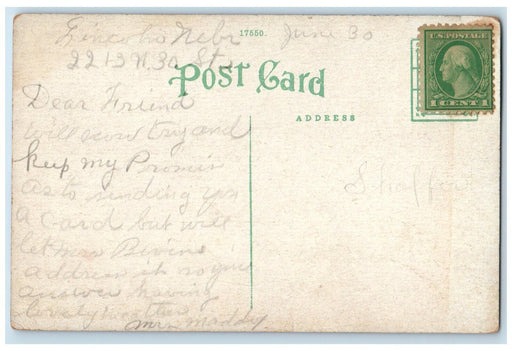 Lincoln Nebr June 30
17550.
2212 N. 30 St.
U.S. POSTAGE
1 CENT 1
Post Card
ADDRESS
Dear Friend
will now try and
keep my Promis
as to sending you
a Card but will
let Mrs Bivins
address it so you
answer having
lovely weather
Mrs Maddy